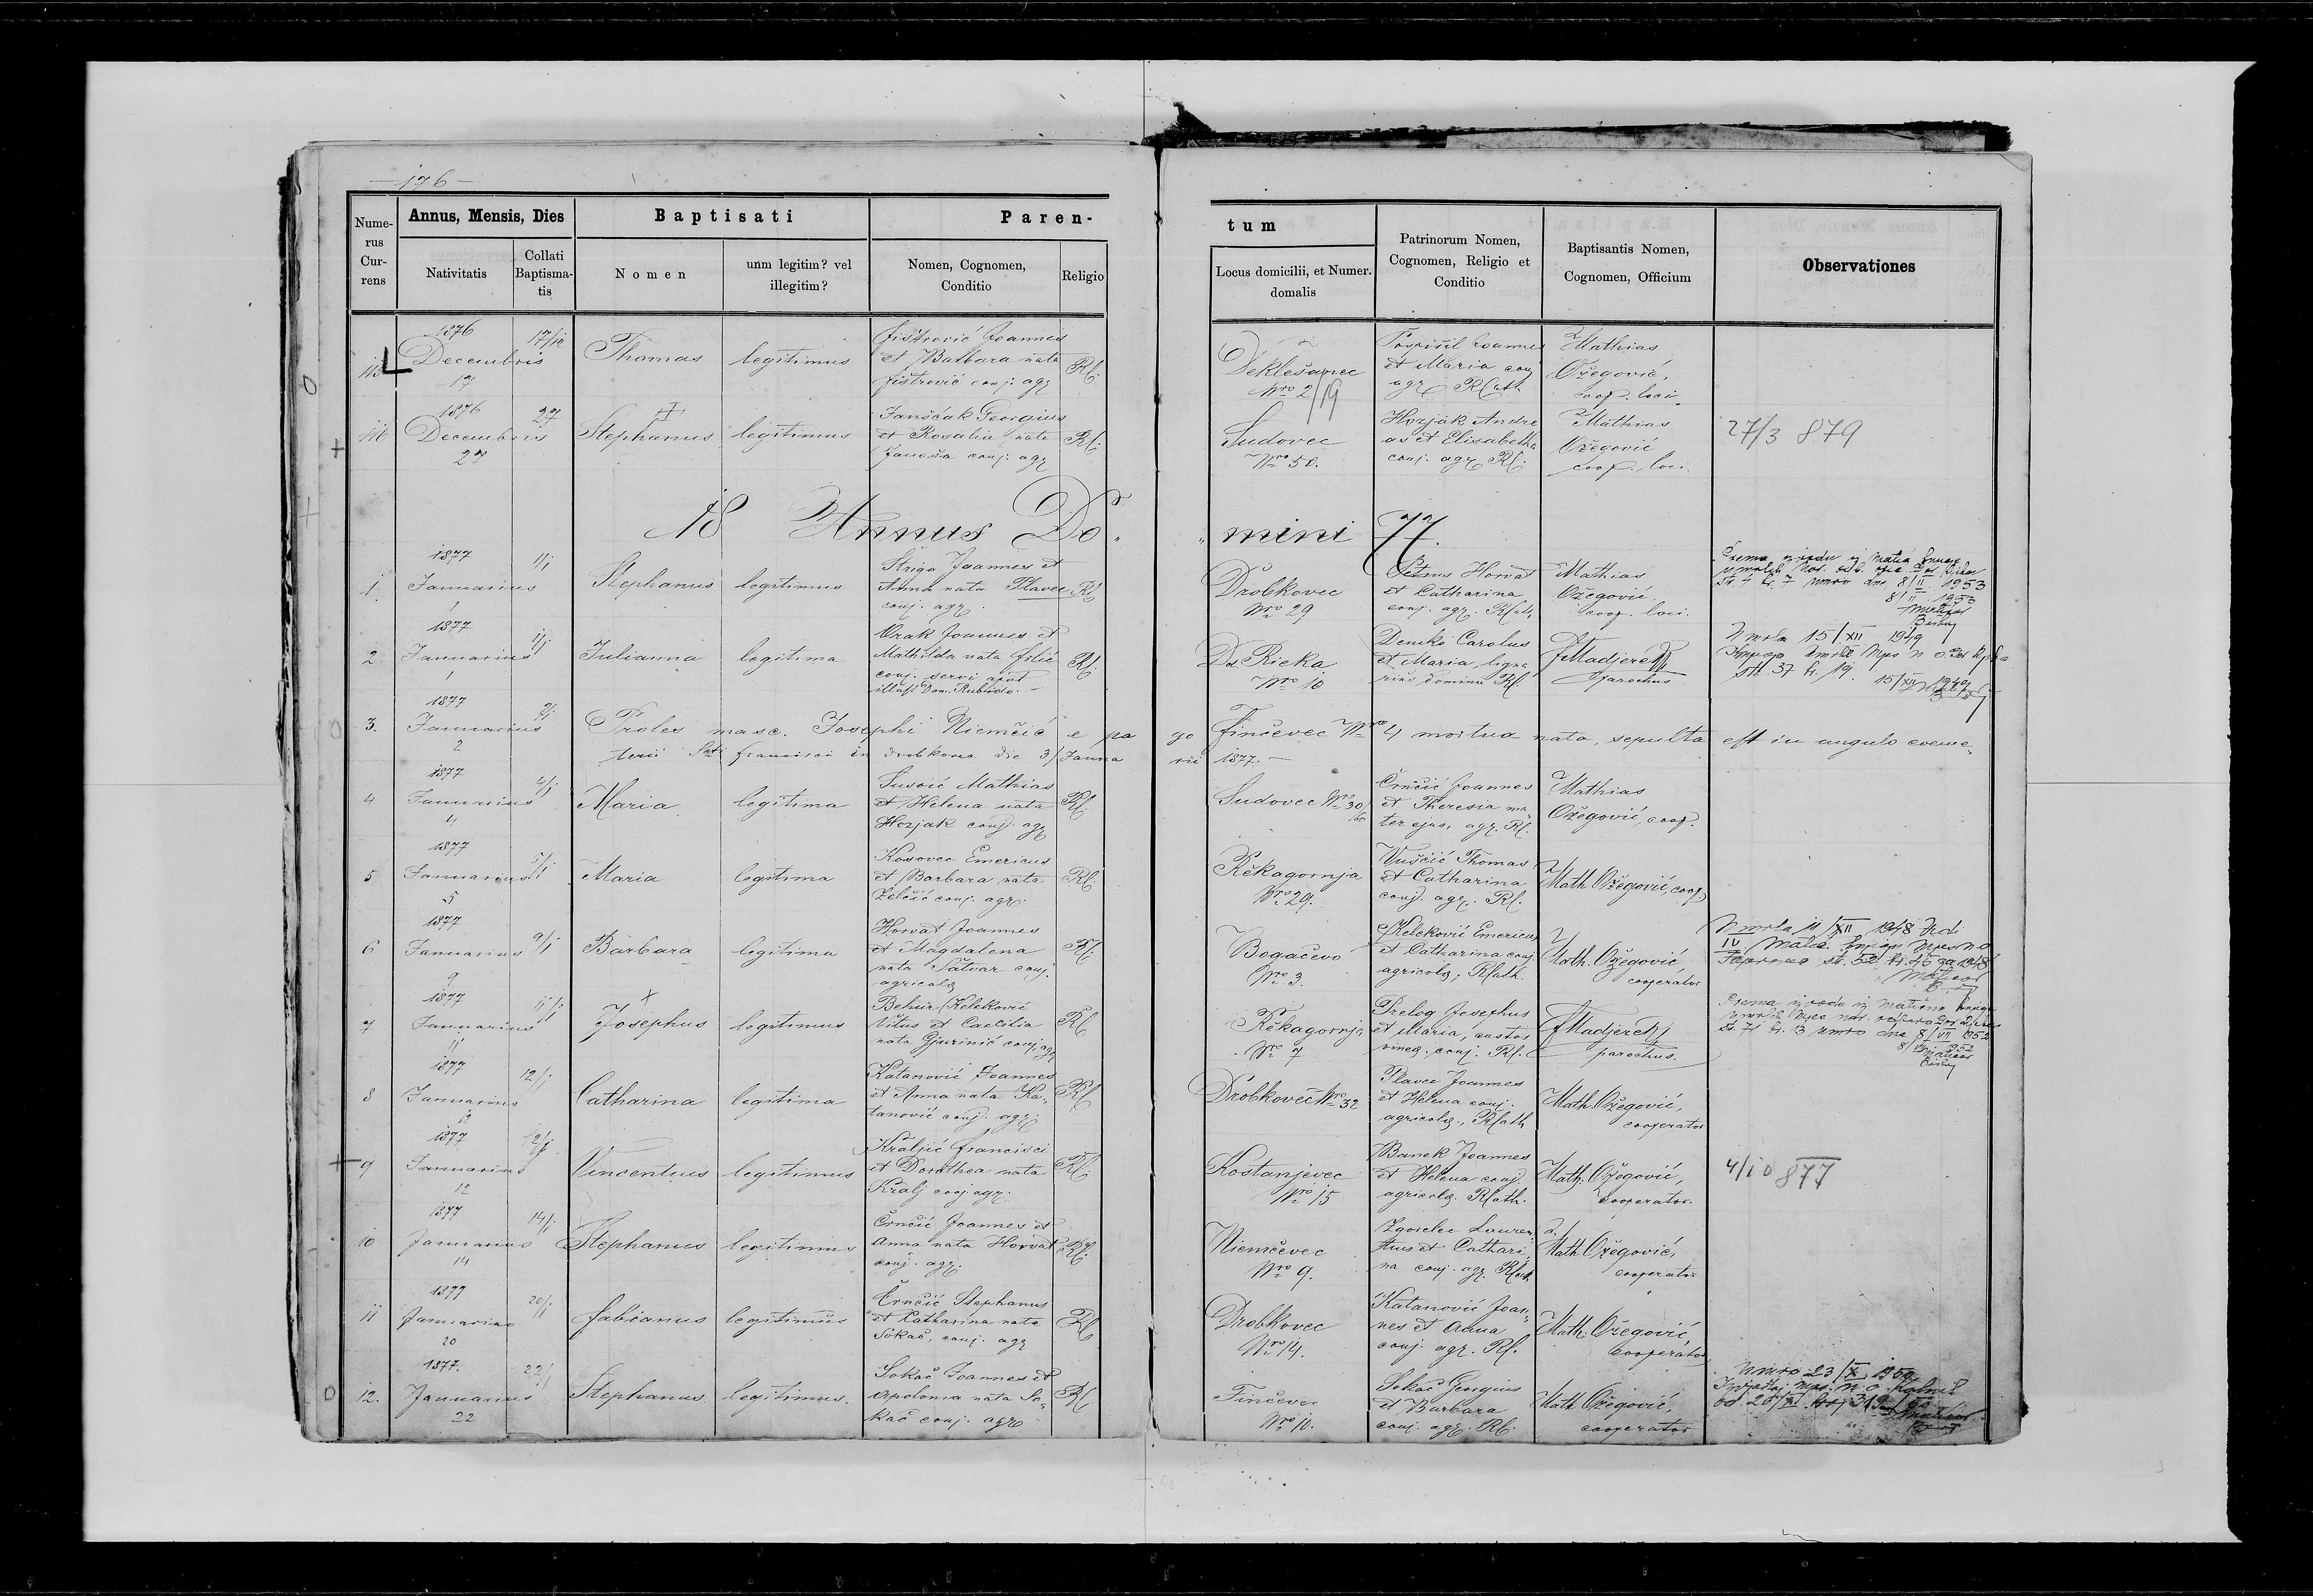 176
Nume-
rus
Cur-
rens
Annus, Mensis, Dies
Nativitatis
Collati
Baptisma-
tis
Baptisati
Nomen
unm legitim? vel
illegitim?
Paren-
Nomen, Cognomen,
Conditio
Religio
tum
Locus domicilii, et Numer.
domalis
Patrinorum Nomen,
Cognomen, Religio et
Conditio
Baptisantis Nomen,
Cognomen, Officium
Observationes
115
1876
Decembris
17
17/12
Thomas
legitimus
Fištrović Joannes
et Barbara nata
Fištrović conj. agr
Rl.
Deklešanec
Nro 2/19
Pospišil Joannes
et Maria conj
agr RCath
Mathias
Ožegović,
coop. loci.
116
1876
Decembris
27
27
Stephanus
legitimus
Janščak Georgius
et Rosalia nata
Janoša conj. agr
Rl.
Sudovec
Nro 50.
Horjak Andre
as et Elisabetha
conj. agr Rl.
Mathias
Ožegović
coop. loci.
27/3 879
18 Annus Do-
mini 77.
1.
1877
Januarius
1
1/1
Stephanus
legitimus
Striga Joannes et
Anna nata Plavec
conj. agr.
Rl
Drobkovec
Nro 29
Petrus Horvat
et Catharina
conj. agr. RCath
Mathias
Ožegović.
coop. loci.
8/II 1953
8/II 1953
Matičar
2.
1877
Januarius
1
1/1
Julianna
legitima
Orak Joannes et
Mathilda nata Filić
conj. servi apud
illust Dom. Rubido.
Rl.
Rieka
Nro 10
Carolus
et Maria, ligna
rius dominii Rl.
FMadjere
parochus
Umrla 15/XII 1949
str. 37 br. 19.
15/XII 1949
3.
1877
Januarius
2
2/1
Proles masc. Josephi Niemčić e pa
go Finčevec Nro 4 mortua nata, sepulta est in angulo coeme-
terii Scti Francisci in Drobkovec die 3/ Janua
rii 1877.
4
1877
Januarius
4
4/1
Maria
legitima
Susoić Mathias
et Helena nata
Horjak conj. agr
Rl.
Sudovec Nro 30/60
Črnčić Joannes
et Theresia ma
ter ejus, agr. Rl.
Mathias
Ožegović, coop.
5
1877
Januarius
5
5/1
Maria
legitima
Kosovec Emericus
et Barbara nata
Zelčić conj. agr.
Rl.
Rěkagornja
Nro 29.
Vuščić Thomas
et Catharina
conj. agr. Rl.
Math Ožegović, coop
6
1877
Januarius
9
9/1
Barbara
legitima
Horvat Joannes
et Magdalena
nata Šatvar conj.
agricolæ
Rl.
Bogačevo
Nro 3.
Keleković Emericus
et Catharina conj
agricolæ, RCath.
Math. Ožegović
cooperator
Umrla 11/XII 1948
str. 52 br. 45 za 1948
7
1877
Januarius
11
11/1
Josephus
legitimus
Bekur/Keleković
Vitus et Caecilia
nata Gjurinić conj. agr
Rl
Rěkagornja
Nro 7
Prelog Josephus
et Maria, custos
vineæ. conj. Rl.
FMadjere
parochus.
umro dne 8/VII 1952
8
1877
Januarius
12
12/1
Catharina
legitima
Katanović Joannes
et Anna nata Ka-
tanović conj. agr.
Rl
Drobkoveč Nro 32
Plavec Joannes
et Helena conj.
agricolæ, RCath
Math. Ožegović,
cooperator
9
1877
Januarius
12
12/1
Vincentius
legitimus
Kraljić Francisci
et Dorothea nata
Kralj conj. agr.
Rl.
Kostanjevec
Nro 15
Banek Joannes
et Helena conj.
agricolæ RCath.
Math. Ožegović,
cooperator.
4/10 877
10
1877
Januarius
14
14/1
Stephanus
legitimus
Črnčić Joannes et
Anna nata Horvat
conj. agr.
Rl.
Niemčevec
Nro 9.
Zgorelec Lauren-
tius et Cathari-
na conj. agr. RCath
Math Ožegović,
cooperator
11
1877
Januarius
20
20/1
Fabianus
legitimus
Črnčić Stephanus
et Catharina nata
Sokač, conj. agr
Rl
Drobkovec
Nro 14.
Katanović Joan-
nes et Anna
conj. agr. Rl.
Math. Ožegović,
cooperator
12.
1877.
Januarius
22
22/1
Stephanus
legitimus.
Sokač Joannes et
Apolonia nata So-
kač conj. agr
Rl
Finčevec
Nro 10.
Sokač Georgius
et Barbara
conj. agr. Rl.
Math Ožegović,
cooperator
Umro 23/X